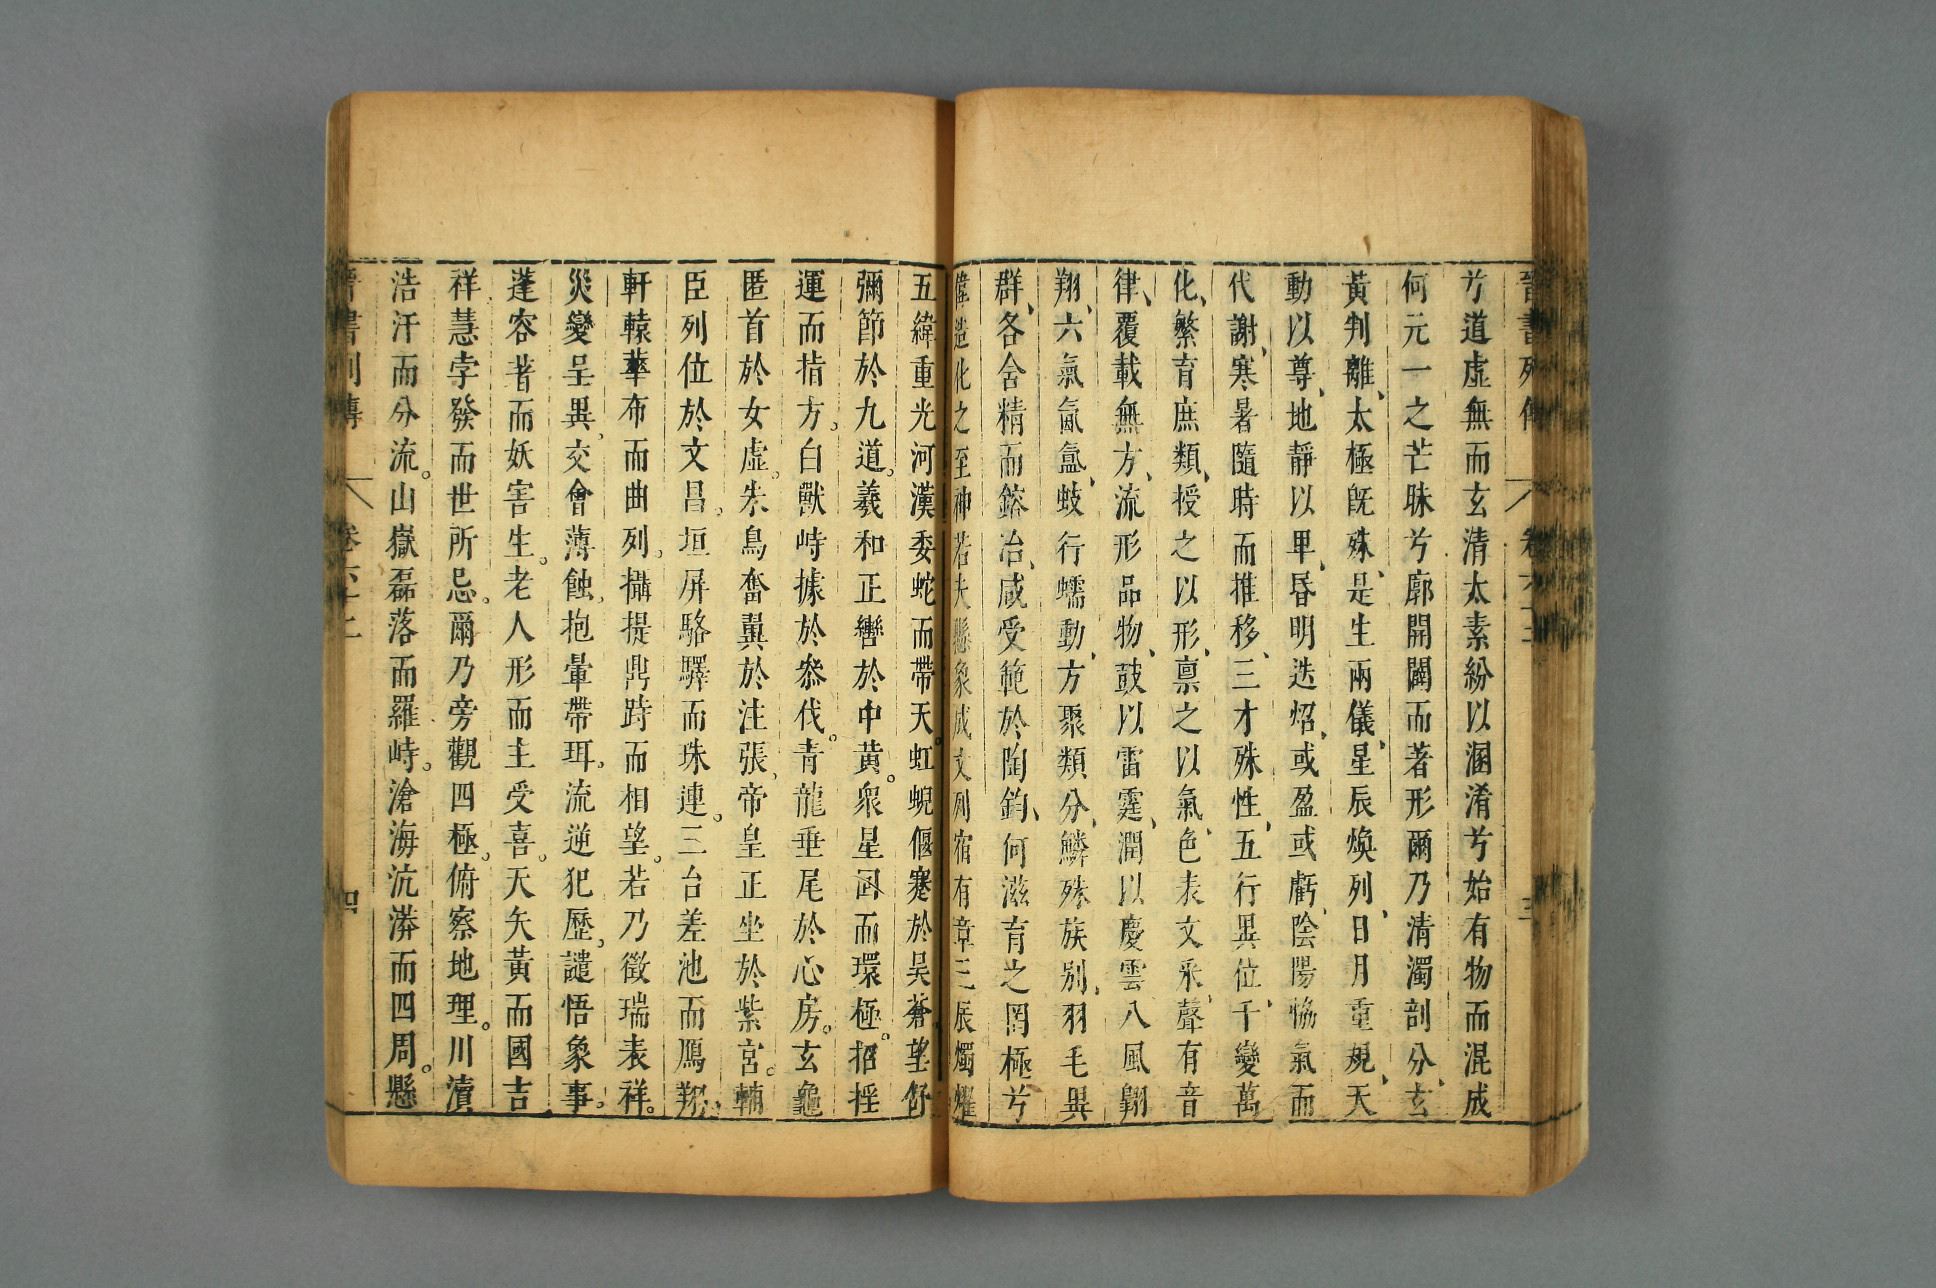 晉書列傳 卷六十二 三
兮道虛無而玄清太素紛以溷淆兮始有物而混成
何元一之芒昧兮廓開闢而著形爾乃清濁剖分、玄
黃判離、太極旣殊、是生兩儀、星辰煥列、日月重規、天
動以尊、地靜以卑、昏明迭炤、或盈或虧、陰陽恊氣而
代謝、寒暑隨時而推移、三才殊性、五行異位、千變萬
化、繁育庶類、授之以形、稟之以氣、色表文釆、聲有音
律、覆載無方、流形品物、鼓以雷霆、潤以慶雲八風翺
翔、六氣氤氳、蚑行蠕動、方聚類分、鱗殊族別、羽毛異
群、各含精而鎔冶、咸受範於陶鈞、何滋育之罔極兮
偉造化之至神若夫懸象成文列宿有章三辰燭燿
五緯重光河漢委蛇而帶天。虹蜺偃蹇於昊蒼。望舒
彌節於九道。羲和正轡於中黃。衆星回而環極。招揺
運而指方。白獸峙據於叅伐。青龍垂尾於心房。玄龜
匿首於女虛。朱鳥奮翼於注張、帝皇正坐於紫宮。輔
臣列位於文昌。垣屏駱驛而珠連。三台差池而鴈翔。
軒轅華布而曲列。攝提鼎跱而相望。若乃徵瑞表祥。
災變呈異、交會薄蝕。抱暈帶珥。流逆犯歷。譴悟象事。
蓬容著而妖害生。老人形而主受喜。天矢黃而國吉
祥慧孛發而世所忌。爾乃旁觀四極。俯察地理。川瀆
浩汗而分流。山嶽磊落而羅峙。滄海沆漭而四周。懸
晉書列傳 卷六十二 四